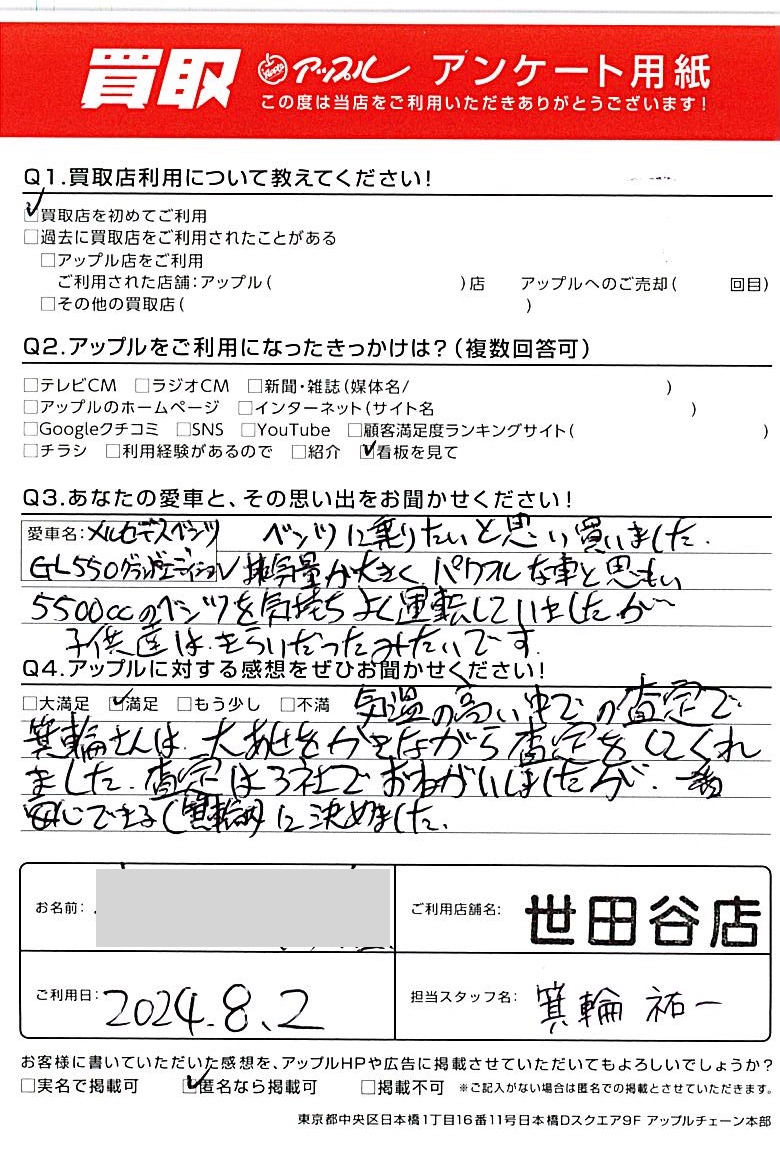 買取 アップル アンケート用紙
この度は当店をご利用いただきありがとうございます!
Q1.買取店利用について教えてください!
☑買取店を初めてご利用
□過去に買取店をご利用されたことがある
□アップル店をご利用
ご利用された店舗:アップル( )店 アップルへのご売却( 回目)
□その他の買取店( )
Q2.アップルをご利用になったきっかけは?(複数回答可)
□テレビCM □ラジオCM □新聞・雑誌(媒体名/ )
□アップルのホームページ □インターネット(サイト名 )
□Googleクチコミ □SNS □YouTube □顧客満足度ランキングサイト( )
□チラシ □利用経験があるので □紹介 ☑看板を見て
Q3.あなたの愛車と、その思い出をお聞かせください!
愛車名:メルセデスベンツ ベンツに乗りたいと思い買いました.
GL550グランドエディション 排気量が大きく パワフルな車と思もい
5500ccのベンツを気持ちよく運転していましたが
子供達は きらいだったみたいです.
Q4.アップルに対する感想をぜひお聞かせください!
□大満足 ☑満足 □もう少し □不満 気温の高い中での査定で
箕輪さんは 大あせをかきながら 査定をしてくれ
ました. 査定は3社で おねがいしましたが. 一番
安心できる(箕輪さん)に決めました.
お名前: ご利用店舗名: 世田谷店
ご利用日: 2024.8.2 担当スタッフ名: 箕輪 祐一
お客様に書いていただいた感想を、アップルHPや広告に掲載させていただいてもよろしいでしょうか?
□実名で掲載可 ☑匿名なら掲載可 □掲載不可 ※ご記入がない場合は匿名での掲載とさせていただきます。
東京都中央区日本橋1丁目16番11号日本橋Dスクエア9F アップルチェーン本部